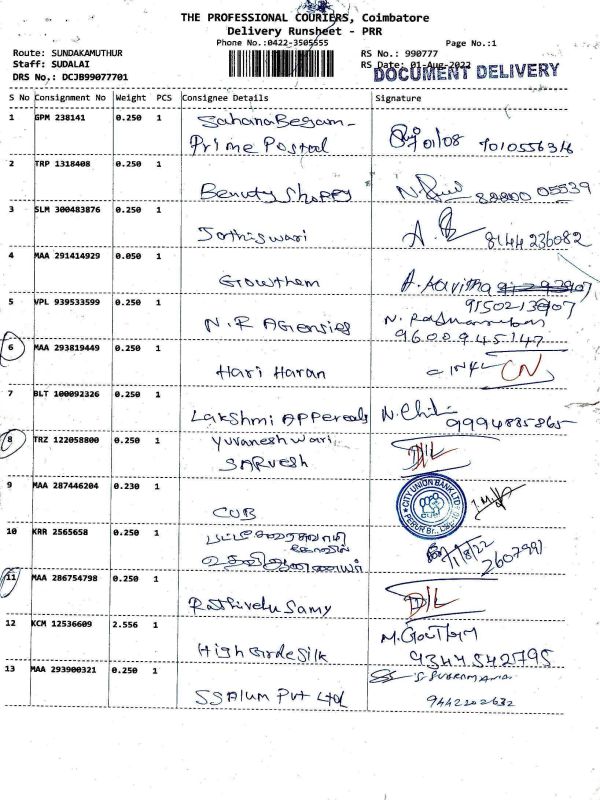 THE PROFESSIONAL COURIERS, Coimbatore
Delivery Runsheet - PRR
Phone No.:0422-3505555
Page No.:1
Route: SUNDAKAMUTHUR
RS No.: 990777
Staff: SUDALAI
RS Date: 01-Aug-2022
DRS No.: DCJB99077701
DOCUMENT DELIVERY
S No Consignment No Weight PCS Consignee Details Signature
1 GPM 238141 0.250 1 SahanaBegam-
Prime Postal 01/08 7010556316
2 TRP 1318408 0.250 1
Beauty Shoppy 05539
3 SLM 300483876 0.250 1
Jothiswari 8144236082
4 MAA 291414929 0.050 1
Growthem A. Kavitha
5 VPL 939533599 0.250 1
N.R AGensies
9600945147
6 MAA 293819449 0.250 1
Hari Haran CN
7 BLT 100092326 0.250 1
Lakshmi APPereals 9994885865
8 TRZ 122058800 0.250 1 Yuvaneshwari
SARVesh D/L
9 MAA 287446204 0.230 1
CUB
CITY UNION BANK LTD
10 KRR 2565658 0.250 1
1/8/22
2607991
11 MAA 286754798 0.250 1
RathiveluSamy D/L
12 KCM 12536609 2.556 1 M.Gowtham
HighGrdeSilk 9344542795
13 MAA 293900321 0.250 1
SSAlum Pvt Ltd 9442202632